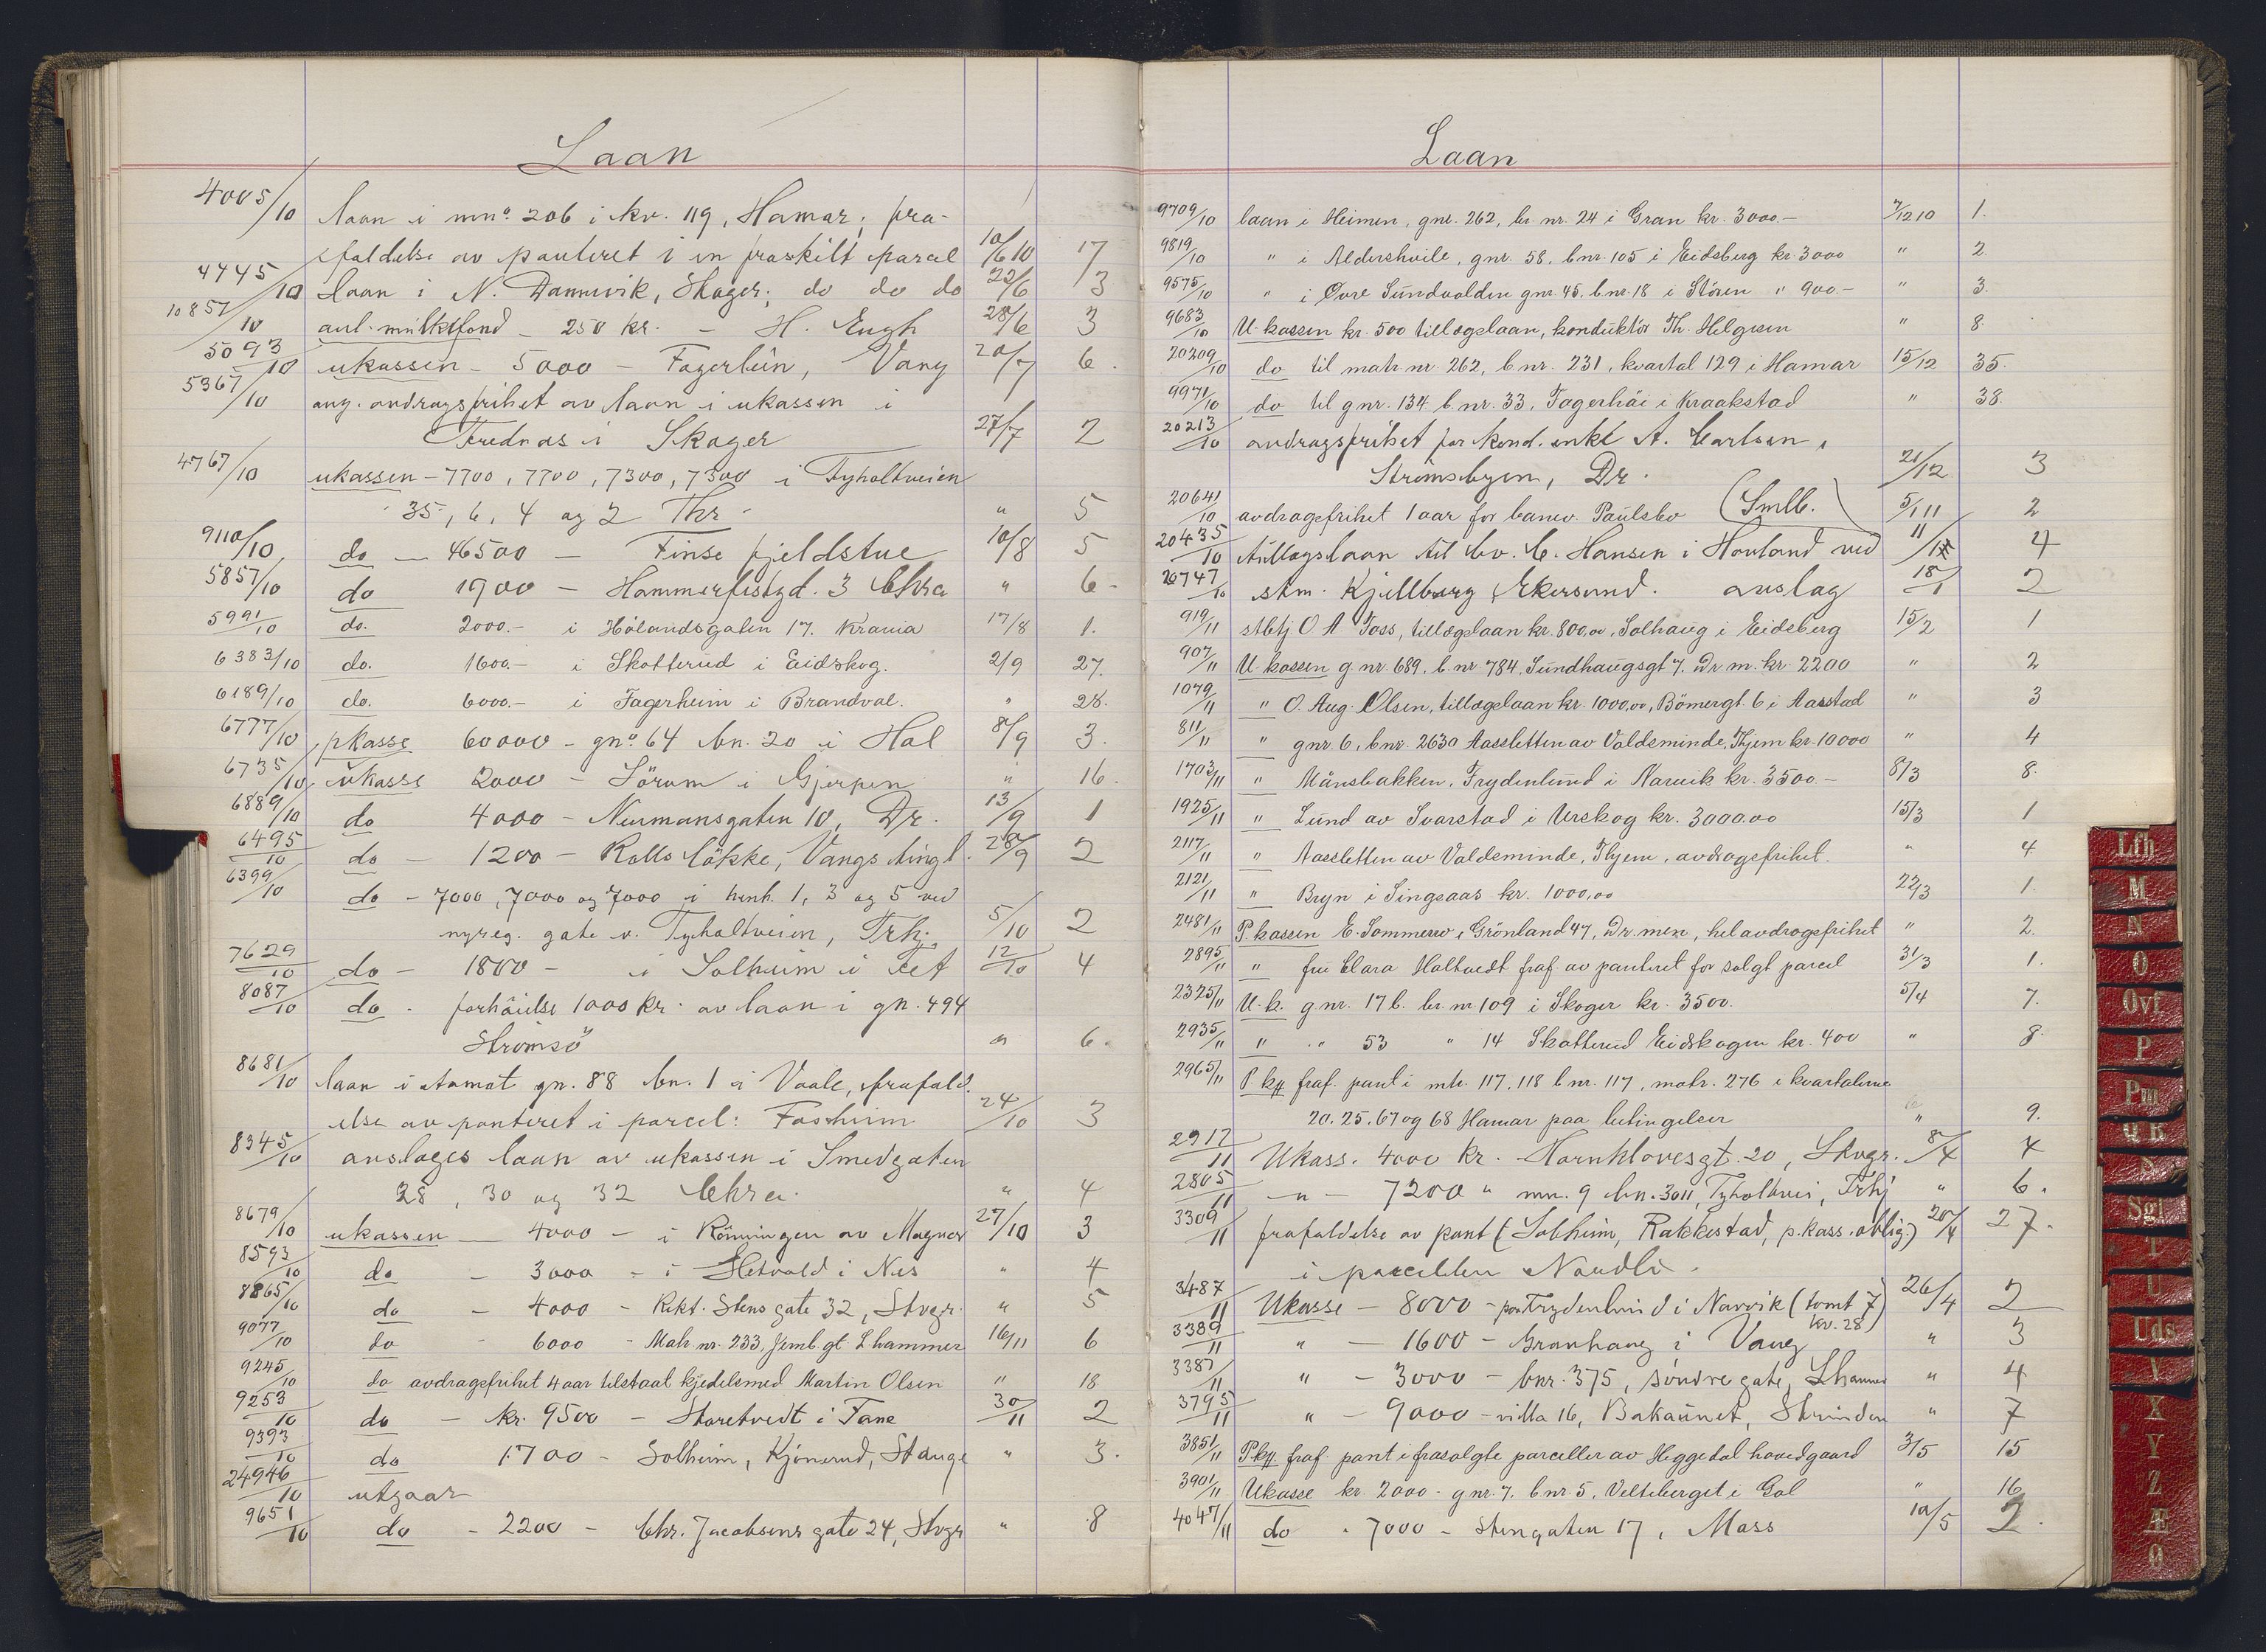 Laan
4005/10 laan i mno. 206 i kv. 119, Hamar; fra-
faldelse av panteret i en fraskilt parcel 10/6 10 17
4445/10 laan i N. Dannevik, Skoger; do do do 22/6 3
10857/10 anl. mulktfond - 250 kr. - H. Engh 28/6 3
5093/10 ukassen - 5000 - Fagerlün, Vang 20/7 6.
5367/10 ang. avdragsfrihet av laan i ukassen i
Frednæs i Skoger 27/7 2
4767/10 ukassen - 7700, 7700, 7300, 7300 i Tyholtveien
35, 6, 4 og 2 Thr. " 5
9110/10 do - 46500 - Finse fjeldstue 10/8 5
5857/10 do 1900 - Hammerfestgd. 3 Chra " 6.
5991/10 do. 2000.- i Hölandsgaten 17. Krania 17/8 1.
6383/10 do. 1600.- i Skotterud i Eidskog. 2/9 27.
6189/10 do. 6000.- i Fagerheim i Brandval. " 28.
6777/10 pkasse 60000 - gno. 64 bn. 20 i Hol 8/9 3.
6735/10 ukasse 2000 - Sörum i Gjerpen " 16.
6889/10 do 4000 - Neumansgaten 10, Dr. 13/9 1
6495/10 do - 1200 - Rolls lökke, Vangs tingl. 28/9 2
6399/10 do - 7000, 7000 og 7000 i henh. 1, 3 og 5 ved
nyreg. gate v. Tyholtveien, Trhj. 5/10 2
7629/10 do - 1800 - i Solheim i Fet 12/10 4
8087/10 do - forhöielse 1000 kr. av laan i gn. 494
Strömsö " 6.
8681/10 laan i Aamot gn. 88 bn. 1 i Vaale, frafald-
else av panteret i parcel: Fosheim 24/10 3
8345/10 anslages laan av ukassen i Smedgaten
28, 30 og 32 Chra. " 4
8679/10 ukassen - 4000 - i Rönningen av Magnor 27/10 3
8593/10 do - 3000 - i Hetvold i Nes " 4
8865/10 do - 4000 - Rekt. Stens gate 32, Stvgr. " 5
9077/10 do - 6000 - Matr. nr. 233, Jernb. gt. Lhammer 16/11 6
9245/10 do avdragsfrihet 4 aar tilstaat kjedelsmed Martin Olsen " 18.
9253/10 do - kr. 9500 - Storetvedt i Fane 30/11 2
9393/10 do 1700 - Solheim, Kjönerud, Stange " 3.
24946/10 utgaar
9651/10 do - 2200 - Chr. Jacobsens gate 24, Stvgr " 8
Laan
9709/10 laan i Heimen, gnr. 262, br. nr. 24 i Gran kr. 3000.- 7/12 10 1.
9819/10 " i Aldershvile, gnr. 58, bnr. 105 i Eidsberg kr. 3000 " 2.
9575/10 " i Övre Sundvolden gnr. 45, b.nr. 18 i Stören " 900.- " 3.
9683/10 U. kassen kr. 500 tillægslaan, konduktör Th. Helgesen " 8.
20209/10 do til matr. nr. 262, b.nr. 231, kvartal 129 i Hamar 15/12 35.
9971/10 do til gnr. 134 b.nr. 33, Fagerhöi i Kraakstad " 38.
20213/10 avdragsfrihet for kond. enke A. Carlsen,
Strömsbyen, Dr. 21/12 3
20641/10 avdragsfrihet 1 aar for banev. Paulsbo (Smlb. 5/1 11 2
20435/10 tillægslaan til bv. C. Hansen i Hovland ved 11/1 4
20747/10 stm. Kjellberg, Ekersund. avslag 18/1 2
919/11 stbtj O A Foss, tillægslaan kr. 800,00, Solhaug i Eidsberg 15/2 1
907/11 U. kassen g.nr. 689, b.nr. 784, Sundhaugsgt 7, Dr. m. kr. 2200 " 2
1079/11 " O. Aug. Olsen, tillægslaan kr. 1000,00, Bömergt. 6 i Aasstad " 3
811/11 " gnr. 6, bnr. 2630 Aasletten av Valdeminde, Thjem kr. 10000 " 4
1703/11 " Månsbakken, Frydenlund i Narvik kr. 3500.- 8/3 8.
1925/11 " Lund av Svarstad i Urskog kr. 3000.00 15/3 1
2117/11 " Aasletten av Valdeminde, Thjem, avdragsfrihet. " 4.
2121/11 " Bryn i Singsaas kr. 1000,00 22/3 1.
2481/11 P. kassen E. Sommero i Grönland 47, Dr.men, hel avdragsfrihet " 2.
2895/11 " fru Clara Holtvedt fraf. av panteret for solgt parcel 31/3 1.
2325/11 U. k. gnr. 17 b. br. nr 109 i Skoger kr. 3500. 5/4 7.
2935/11 " " 53 " 14 Skotterud Eidskogen kr. 400 " 8.
2965/11 P. k. fraf. pant i mtr. 117, 118 b nr. 117, matr. 276 i kvartalerne
20. 25. 67 og 68 Hamar paa betingelser " 9.
2917/11 Ukass. 4000 kr. Hornklovesgt. 20, Stvgr. 8/4 4
2805/11 - " - 7200 " mn. 9 bn. 3011, Tyholtvei, Trhj " 6.
3309/11 frafaldelse av pant (Solheim, Rakkestad, p.kass. oblig.) 20/4 27.
i parcellen Nordli.
3487/11 Ukasse - 8000 - paa Frydenlund i Narvik (tomt 7 kv. 28) 26/4 2
3389/11 " - 1600 - Granhaug i Vang " 3
3387/11 " - 3000 - bnr. 375, söndre gate, Lhammer " 4
3795/11 " - 9000 - villa 16, Bakaunet, Strinden " 7
3851/11 P.k. fraf. pant i frasolgte parceller av Heggedal hovedgaard 3/5 15
3901/11 Ukasse kr. 2000 - gnr. 7, b.nr. 5, Velteberget i Gol " 16
4047/11 do - 7000 - Stengaten 17, Moss 10/5 2.
Lfh
M
N
O
Ovf
P
Pm
Q R
S
Sgt
T
U
Uds
V
X
Y
Z
Æ
Ø